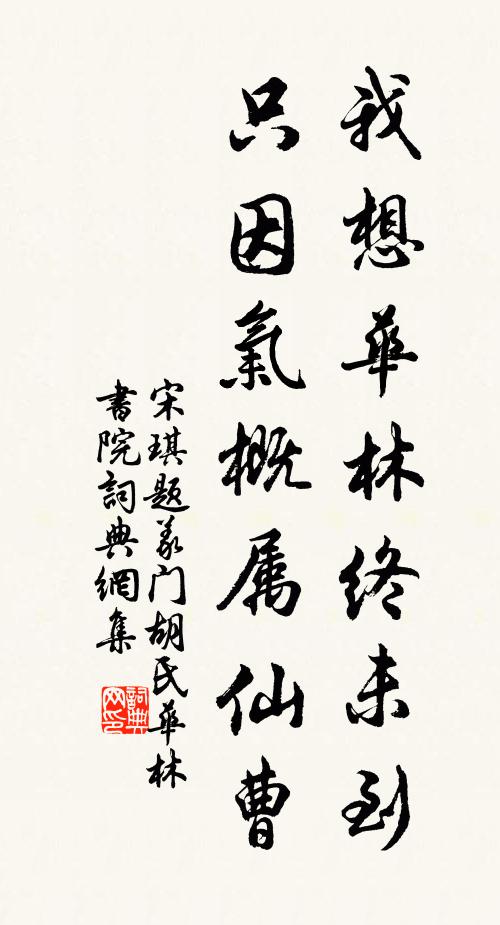 我想華林终未到
只因氣概属仙曹
宋琪题義门胡氏華林
書院詞典網集
詞典网印